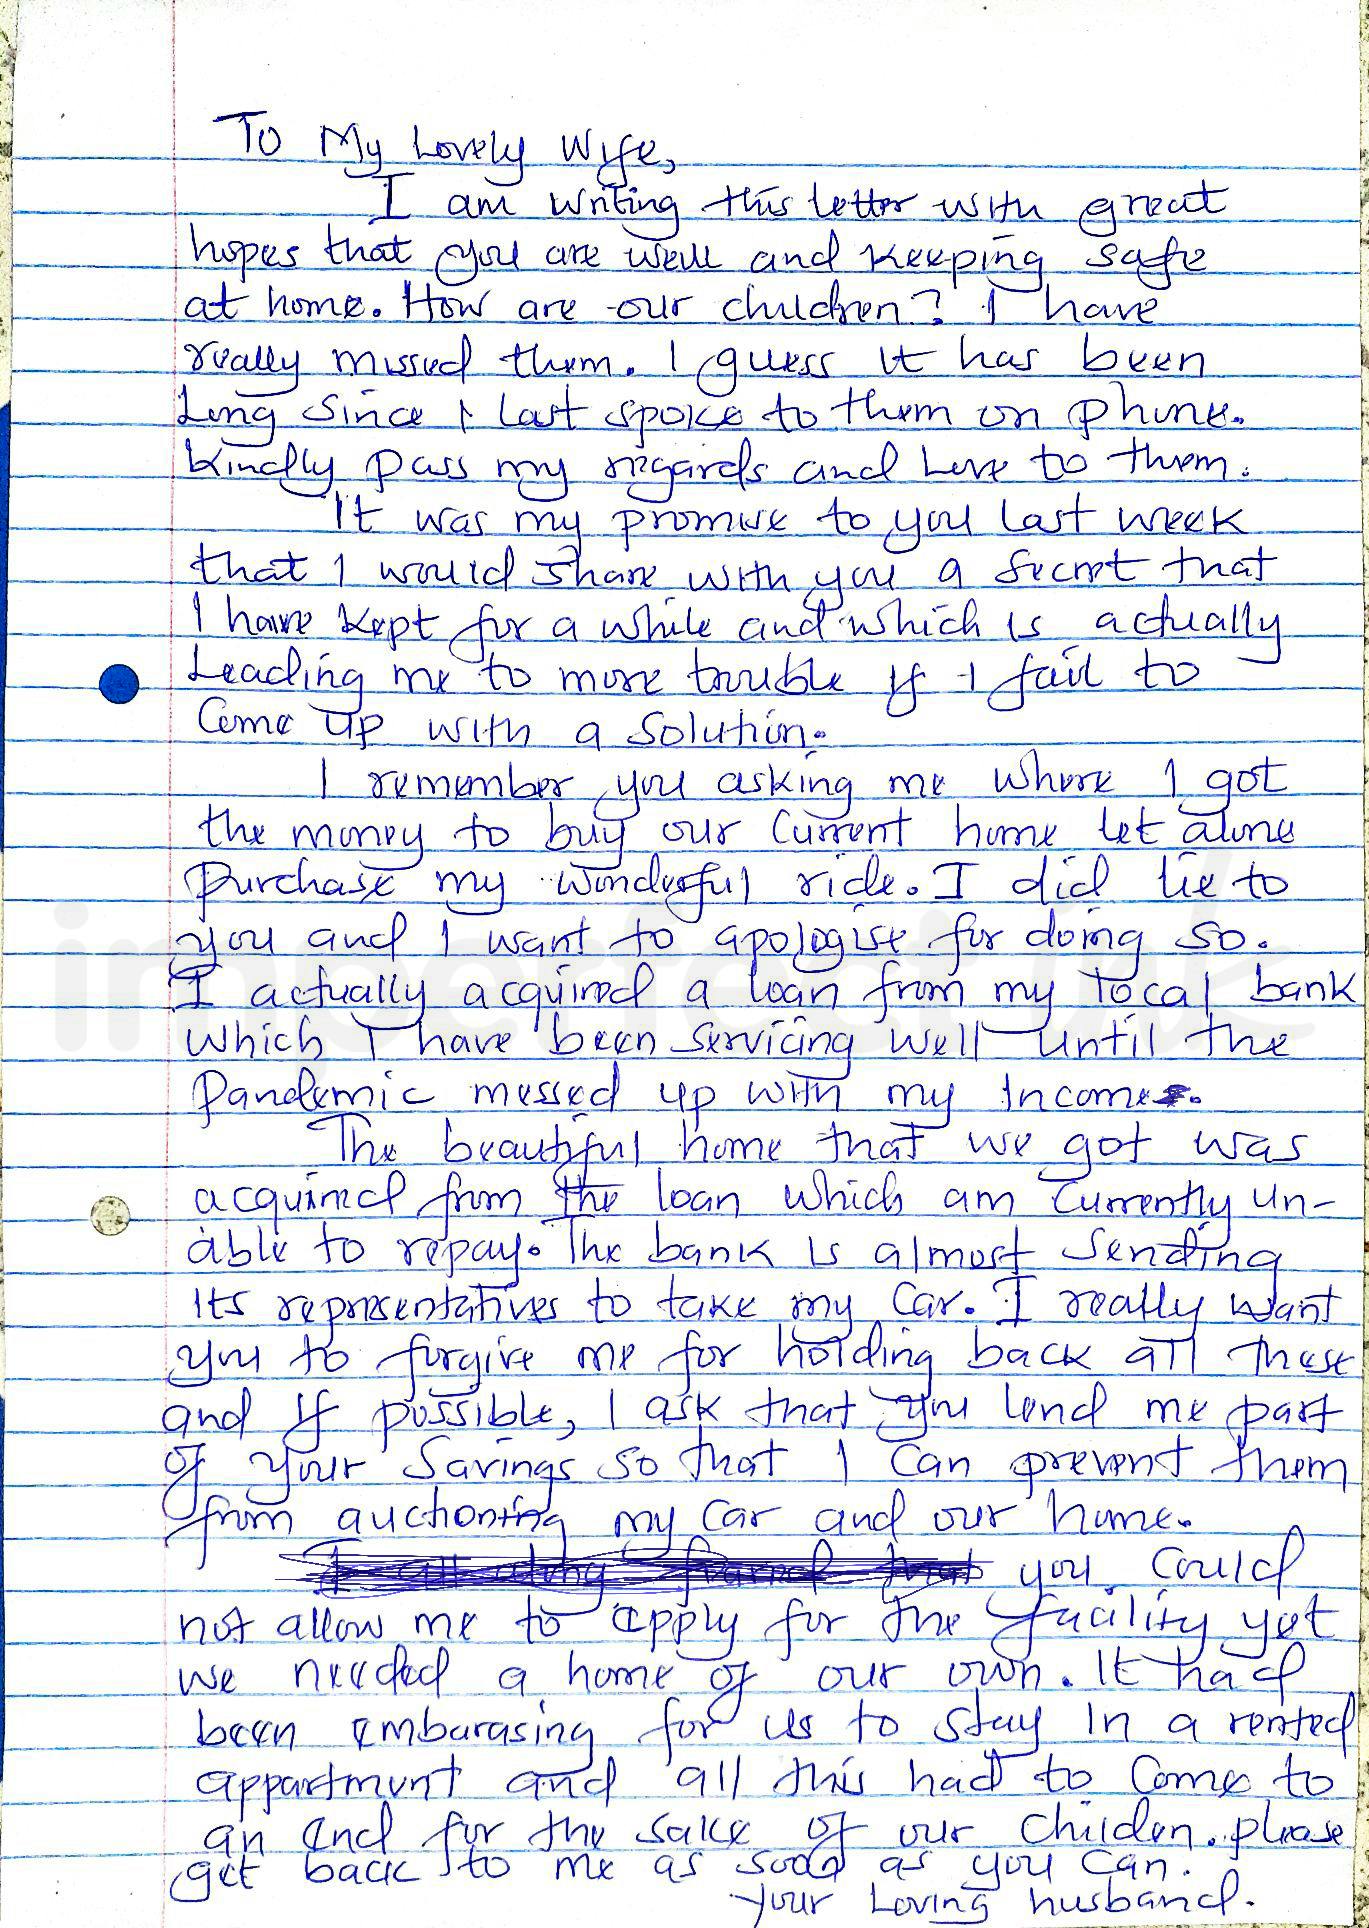 To My Lovely Wife,
I am writing this letter with great
hopes that you are well and keeping safe
at home. How are our children? I have
really missed them. I guess it has been
Long since I last spoke to them on phone.
Kindly pass my regards and love to them.
It was my promise to you last week
that I would share with you a secret that
I have kept for a while and which is actually
Leading me to more trouble if I fail to
Come up with a solution.
I remember you asking me where I got
the money to buy our current home let alone
purchase my wonderful ride. I did lie to
you and I want to apologise for doing so.
I actually acquired a loan from my local bank
which I have been servicing well until the
Pandemic messed up with my income.
The beautiful home that we got was
acquired from the loan which am currently un-
able to repay. The bank is almost sending
its representatives to take my car. I really want
you to forgive me for holding back all these
and if possible, I ask that you lend me part
of your savings so that I can prevent them
from auctioning my car and our home.
you could
not allow me to apply for the facility yet
we needed a home of our own. It had
been embarasing for us to stay in a rented
appartment and all this had to come to
an end for the sake of our childen. please
get back to me as soon as you can.
your Loving husband.
imperfect ink